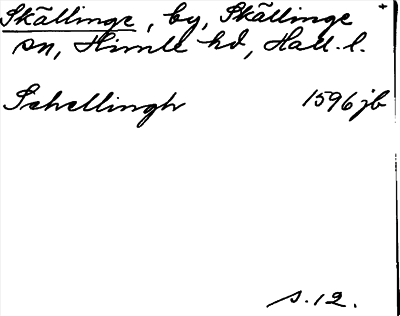 Skällinge, by, Skällinge
sn, Himle hd, Hall. l.
Schellingh 1596 jb
s. 12.